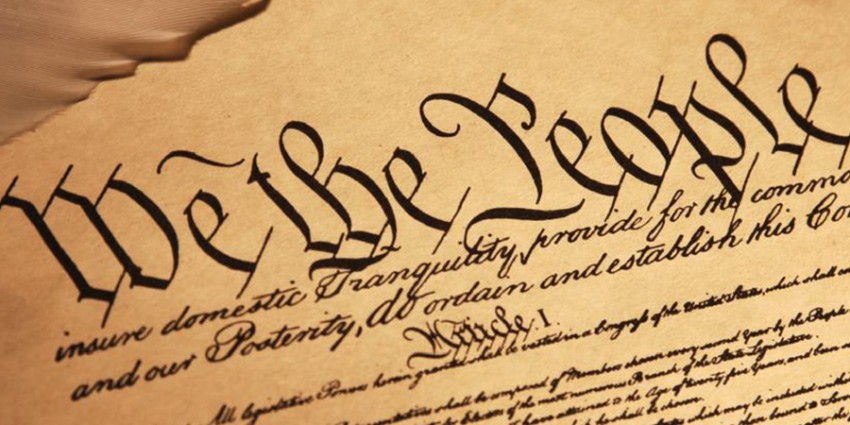 We the People
insure domestic Tranquility, provide for the commo
and our Posterity, do ordain and establish this Co
Article. I.
All legislative Powers herein granted shall be vested in a Congress of the United States, which shall con
shall be composed of Members chosen every second Year by the People
Electors of the most numerous Branch of the State Legislature.
have attained to the Age of twenty five Years, and been a
he shall be chosen.
which may be included within